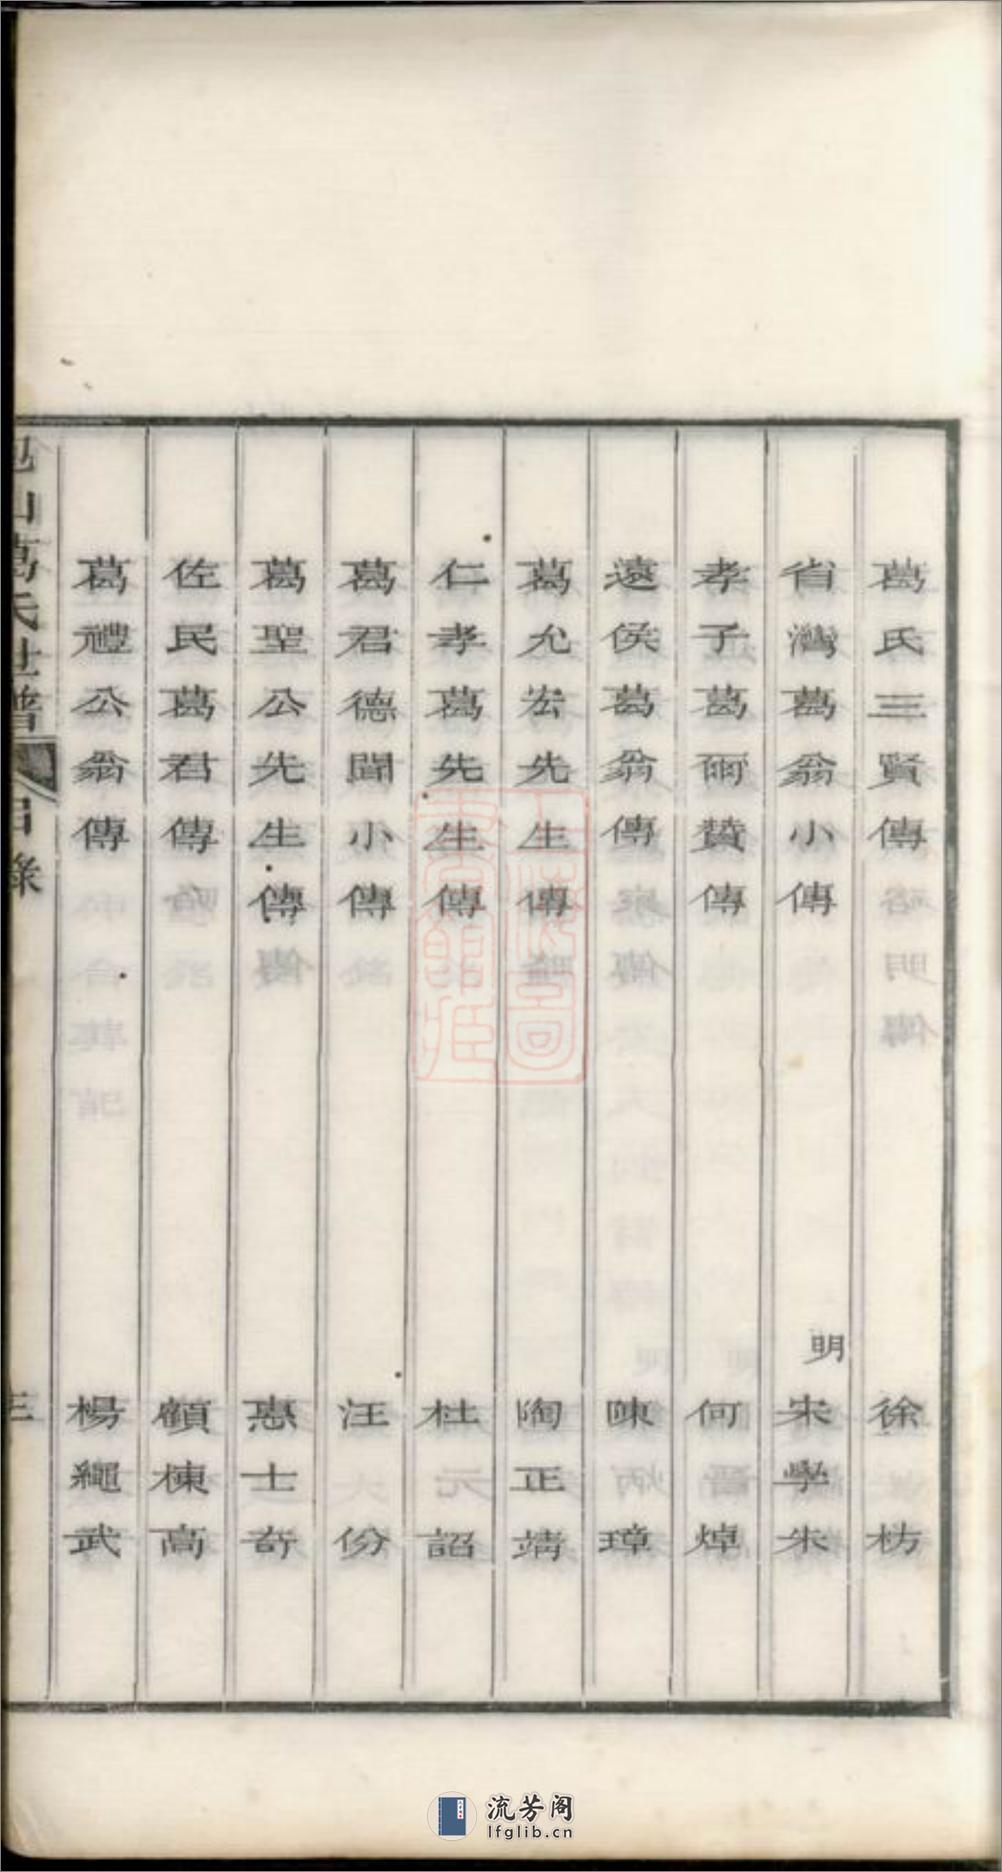 葛氏三賢傳 徐枋
省灣葛翁小傳 明宋學朱
孝子葛爾贊傳 何焯
遠侯葛翁傳 陳璋
葛允宏先生傳 陶正靖
仁孝葛先生傳 杜元詔
葛君德聞小傳 汪份
葛聖公先生傳 惠士奇
佐民葛君傳 顧棟高
葛禮公翁傳 楊繩武
山葛氏世譜 目錄 三
流芳阁
lfglib.cn